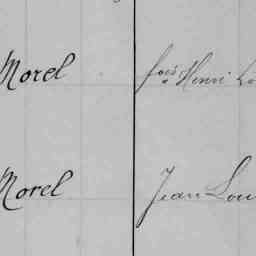 Morel fçois Henri
Morel Jean Lou